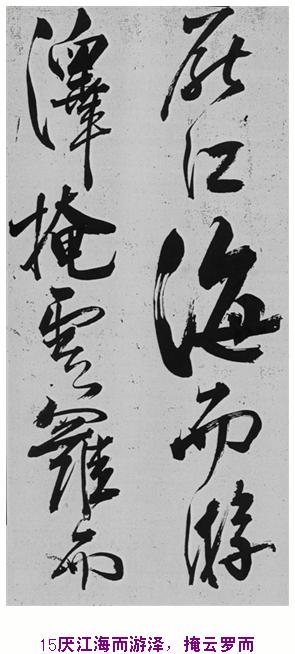 厌江海而游
澤掩雲羅而
15厌江海而游泽，掩云罗而